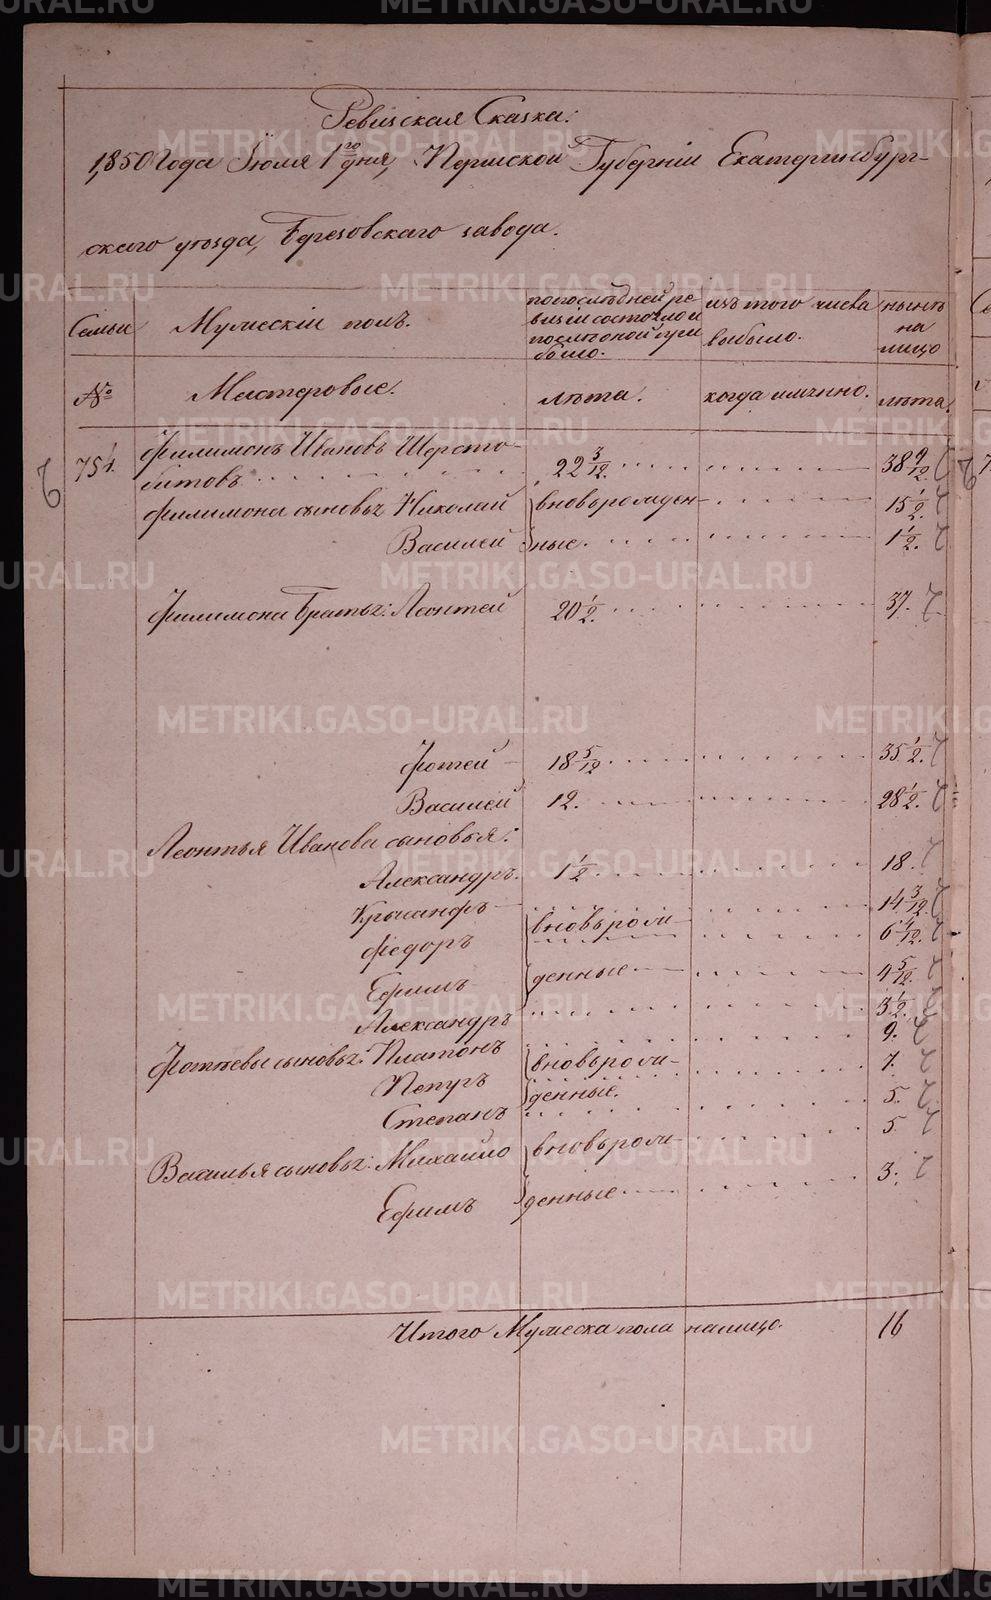 Ревизская Сказка:
1850 Года Іюля 1го дня, Пермской Губерніи Екатеринбург-
скаго уѣзда, Березовскаго завода.
Семьи
Мужескій полъ.
по последней ре-
визіи состояло и
после оной при
было.
изъ того числа
выбыло.
нынѣ
на
лицо
№
Мастеровые.
лѣта.
когда именно.
лѣта.
75/1. Филимонъ Ивановъ Шерсто-
битовъ 22 3/12. 38 9/12
Филимона сыновья Николай вновьрожден- 15 1/2.
Василей ные. 1 1/2.
Филимона Братья: Леонтей 20 1/2. 37.
Фотей 18 5/12 35 1/2.
Василей 12. 28 1/2.
Леонтья Иванова сыновья:
Александръ. 1 1/2. 18.
Крысанфъ 14 3/12
Федоръ вновьрож- 6 4/12.
Ефимъ денные 4 5/12.
Александръ 3 1/2.
Фотѣевы сыновья: Платонъ вновьрож- 9.
Петръ денные. 7.
Степанъ 5.
Василья сыновья: Михайло вновьрож- 5
Ефимъ денные 3.
Итого Мужеска пола налицо. 16
METRIKI.GASO-URAL.RU